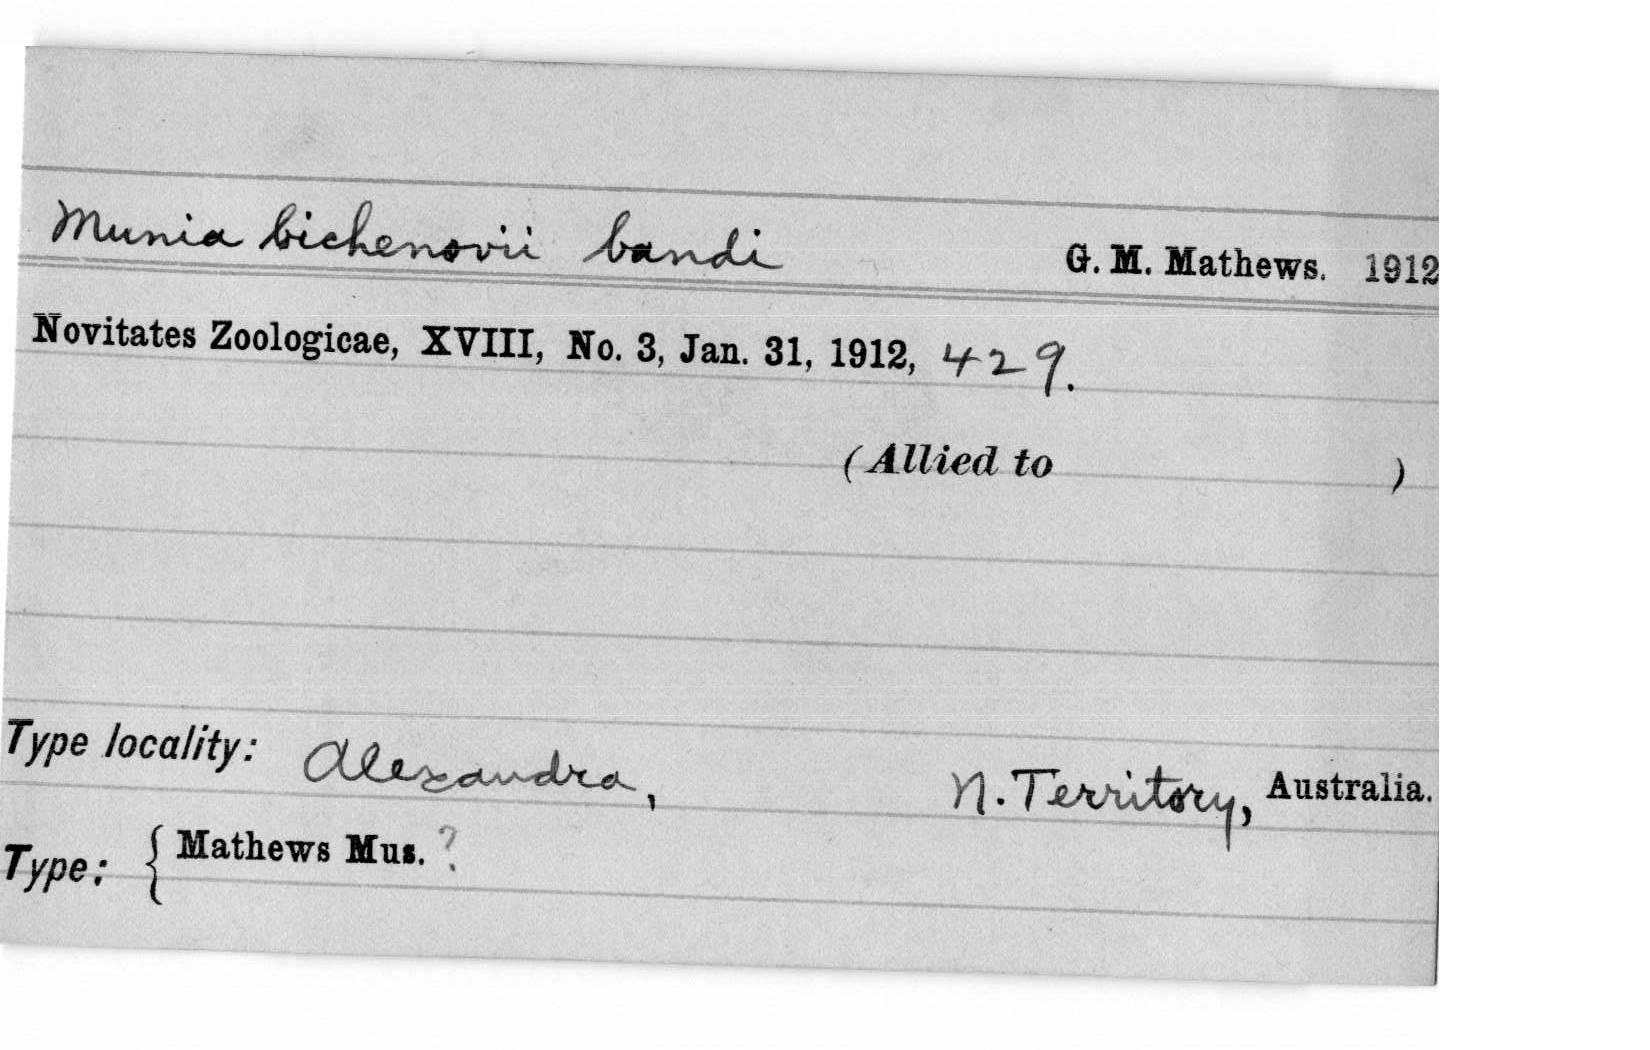 Munia bichenovii bandi G. M. Mathews. 1912
Novitates Zoologicae, XVIII, No. 3, Jan. 31, 1912, 429.
(Allied to )
Type locality: Alexandra, N. Territory, Australia.
Type: { Mathews Mus. ?